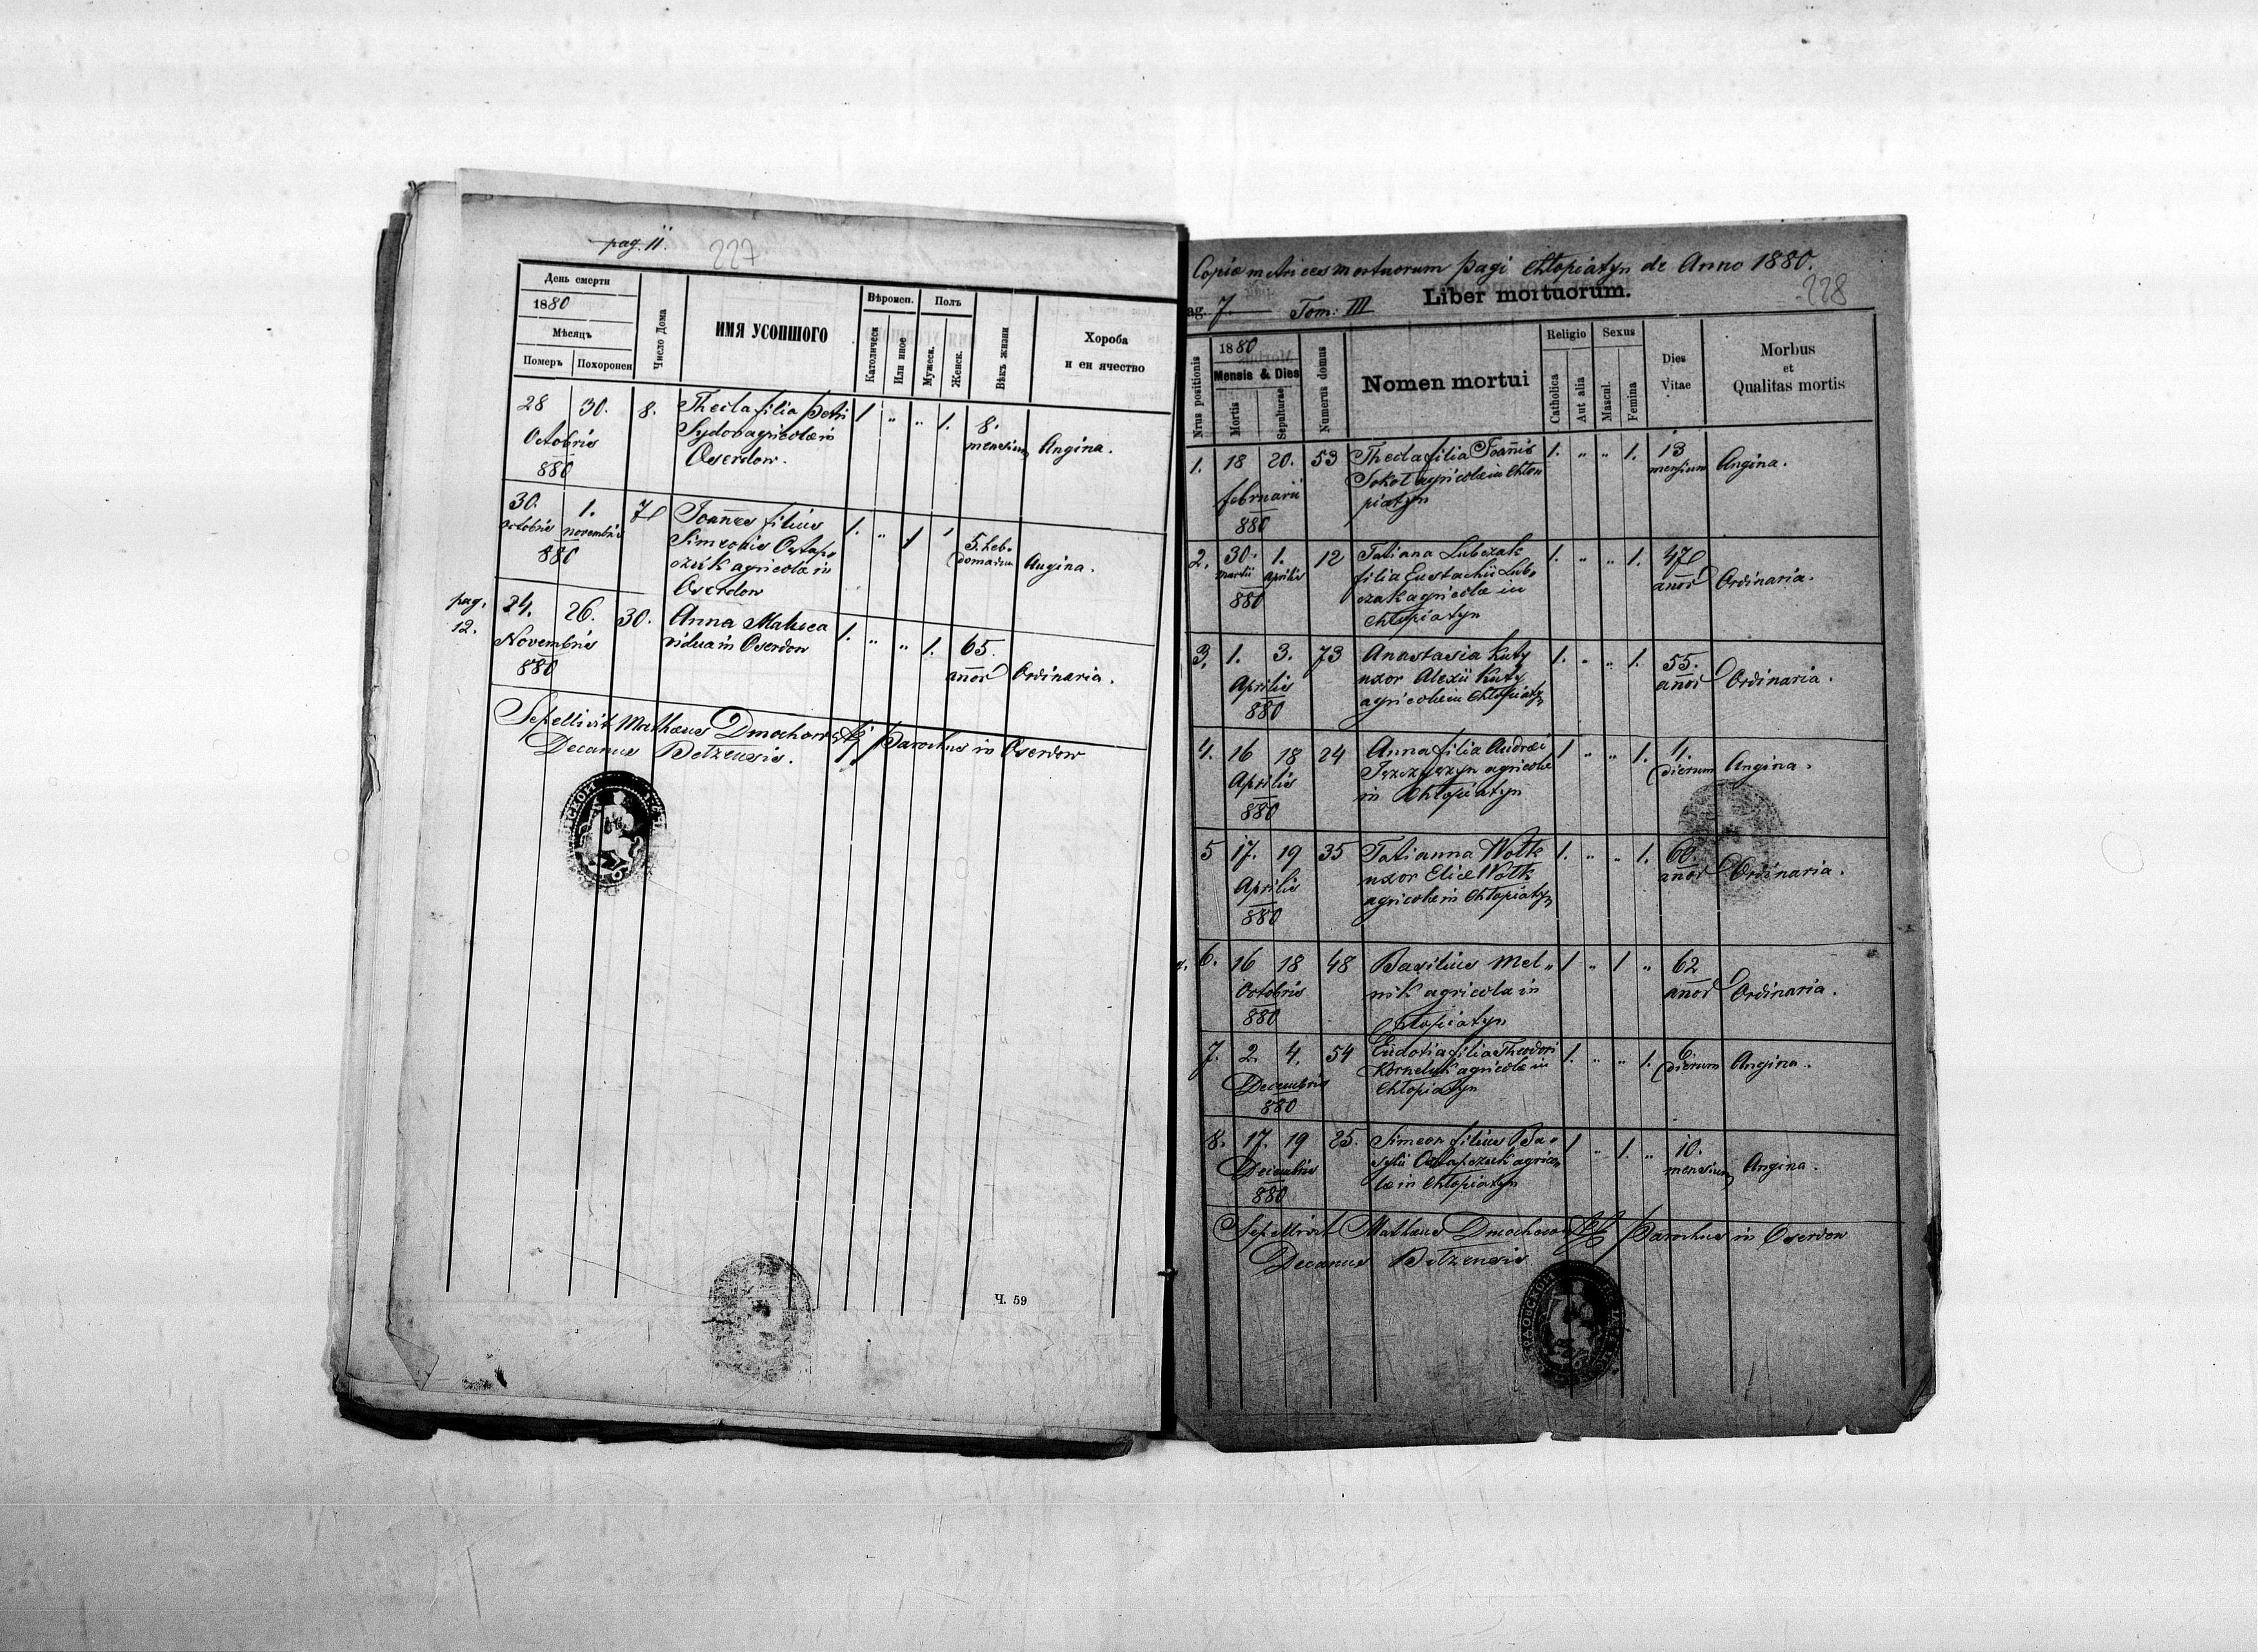 pag. 11.
227
День смерти
1880
Мѣсяцъ
Померъ Похоронен
Число Дома
ИМЯ УСОПШОГО
Вѣроисп.
Католическ
Или иное
Полъ
Мужеск.
Женск.
Вѣкъ жизни
Хороба
и еи ячество
28 30. 8. Thecla filia Petri 1 " " 1. 8.
Octobris Sydor agricolæ in mensium Angina.
880 Oserdow.
30. 1. 7 Joannes filius 1. " 1 5. heb-
octobris novembris Simeonis Ostap- domadum Angina.
880 czuk agricolæ in
Oserdow
pag. 12.
24. 26. 30. Anna 1. " " 1. 65.
Novembris vidua in Oserdow annor Ordinaria.
880
Sepellivit Mathæus Dmochowski Parochus in Oserdow
Decanus Bełzensis.
Ч. 59
Copia metrices mortuorum pagi Chłopiatyn de Anno 1880.
228
ag. 7. Tom: III Liber mortuorum.
Nrus positionis
1880
Mensis & Dies
Mortis
Sepulturae
Numerus domus
Nomen mortui
Religio
Catholica
Aut alia
Sexus
Mascul.
Femina
Dies
Vitae
Morbus
et
Qualitas mortis
1. 18 20. 53 Thecla filia Joannis 1. " " 1. 13
februarii Sokoł agricolæ in Chło mensium Angina.
880 piatyn
2. 30. 1. 12 Tatiana Lubczak 1. " " 1. 47
martii Aprilis filia Eustachii Lub- annor Ordinaria.
880 czak agricolæ in
Chłopiatyn
3. 1. 3. 73 Anastasia Kuty 1. " " 1. 55.
Aprilis uxor Alexii Kuty annor Ordinaria.
880 agricolæ in Chłopiatyn
4. 16 18 24 Anna filia Andreæ 1 " " 1. 4.
Aprilis agricolæ dierum Angina.
880 in Chłopiatyn
5 17. 19 35 Tatianna Wołk 1. " " 1. 60.
Aprilis uxor Eliæ Wołk annor Ordinaria.
880 agricolæ in Chłopiatyn
6. 16 18 48 Basilius Mel- 1 " 1 " 62
Octobris nik agricola in annor Ordinaria.
880 Chłopiatyn
7. 2. 4. 54 Eudotia filia Theodori 1. " " 1. 6
Decembris Korneluk agricolæ in dierum Angina.
880 Chłopiatyn
8. 17. 19 25. Simeon filius Ba- 1 " 1. " 10.
Decembris sylii Ostapczuk agrico- mensium Angina.
880 læ in Chłopiatyn
Sepellivit Mathæus Dmochowski Parochus in Oserdow
Decanus Bełzensis